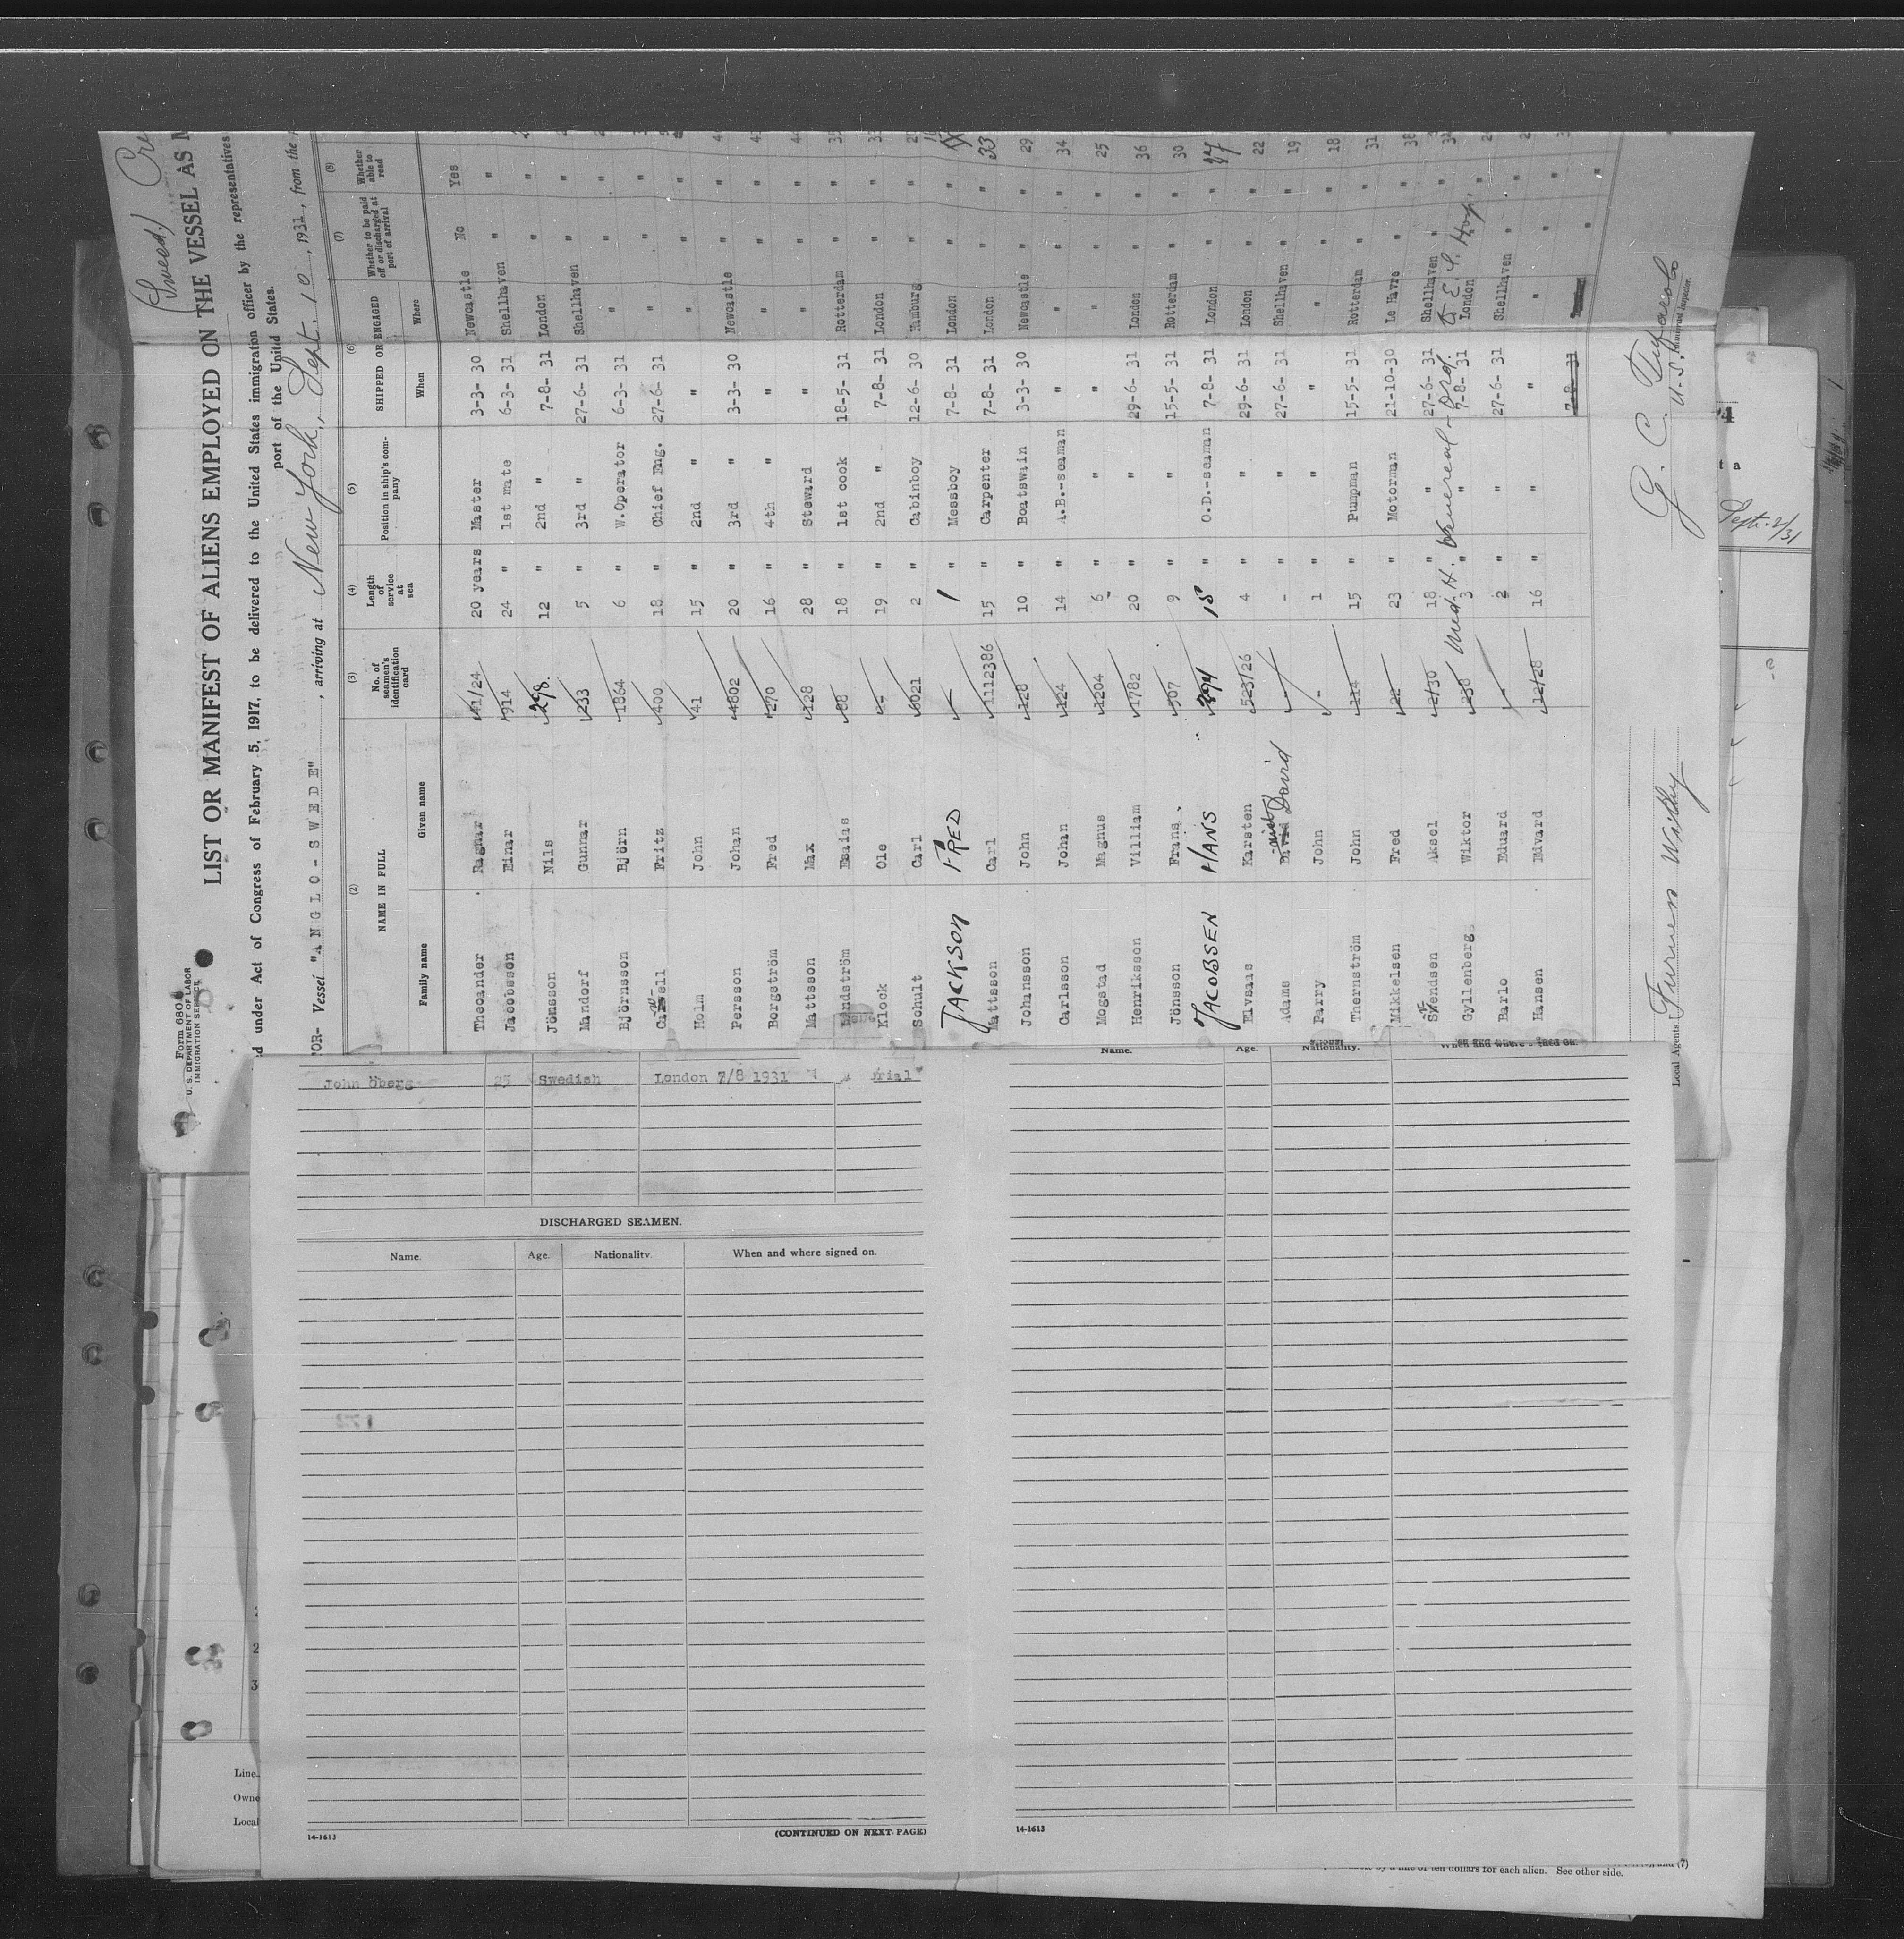 (Swed.)
Form 680
U. S. DEPARTMENT OF LABOR
IMMIGRATION SERVICE
LIST OR MANIFEST OF ALIENS EMPLOYED ON THE VESSEL AS
under Act of Congress of February 5, 1917, to be delivered to the United States immigration officer by the representatives
port of the United States.
Vessel "ANGLO-SWEDE", arriving at New York, Sept. 10, 1931, from the
(2) (3) (4) (5) (6) (7) (8)
NAME IN FULL No. of seamen's identification card Length of service at sea Position in ship's company SHIPPED OR ENGAGED Whether to be paid off or discharged at port of arrival Whether able to read
Family name Given name When Where
Theorander Ragnar 41/24 20 years Master 3-3-30 Newcastle No Yes
Jacobsson Einar 914 24 " 1st mate 6-3-31 Shellhaven " "
Jönsson Nils 298. 12 " 2nd " 7-8-31 London " "
Mandorf Gunnar 233 5 " 3rd " 27-6-31 Shellhaven " "
Björnsson Björn 1864 6 " W.Operator 6-3-31 " " "
Fritz 400 18 " Chief Eng. 27-6-31 " " "
Holm John 41 15 " 2nd " " " " "
Persson Johan 4802 20 " 3rd " 3-3-30 Newcastle " "
Borgström Fred 270 16 " 4th " " " " "
Mattsson Max 128 28 " Steward " " " "
Lindström Esaias 88 18 " 1st cook 18-5-31 Rotterdam " " 35
Klock Ole - 19 " 2nd " 7-8-31 London " "
Schult Carl 6021 2 " Cabinboy 12-6-30 Hamburg " "
JACKSON FRED - 1 " Messboy 7-8-31 London " "
Mattsson Carl 1112386 15 " Carpenter 7-8-31 London " " 33
Johansson John 128 10 " Boatswain 3-3-30 Newcastle " " 29
Carlsson Johan 124 14 " A.B.-seaman " " " " 34
Mogstad Magnus 1204 6 " " " " " " 25
Henriksson Villiam 1782 20 " " 29-6-31 London " " 36
Jönsson Frans 507 9 " " 15-5-31 Rotterdam " " 30
JACOBSEN HANS 294 18 " O.D.-seaman 7-8-31 London " " 27
Elvsaas Karsten 523/26 4 " " 29-6-31 London " " 22
Adams David - - " " 27-6-31 Shellhaven " " 19
Parry John - 1 " " " " " " 18
Thernström John 114 15 " Pumpman 15-5-31 Rotterdam " " 31
Mikkelsen Fred 22 23 " Motorman 21-10-30 Le Havre " " 38
Svendsen Aksel 2/30 18 " " 27-6-31 Shellhaven " "
Gyllenberg Wiktor 238 3 " " 7-8-31 London "
Barlo Eduard - 2 " " 27-6-31 Shellhaven " "
Hansen Edvard 12/28 16 " " " " " "
7-8-31
Local Agents Furness Withy
U.S. Immigrant Inspector.
Sept. 2/31
John Öberg 25 Swedish London 7/8 1931
DISCHARGED SEAMEN.
Name. Age. Nationality. When and where signed on.
14-1613 (CONTINUED ON NEXT PAGE)
Name. Age. Nationality. When and where signed on.
14-1613
Line
Owne
Local
ten dollars for each alien. See other side.